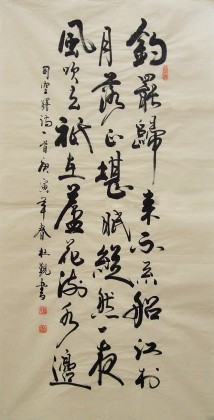 釣罷歸來不系船江村
月落正堪眠縱然一夜
風吹去祇在蘆花淺水邊
司空曙詩一首庚寅年春杜觀書